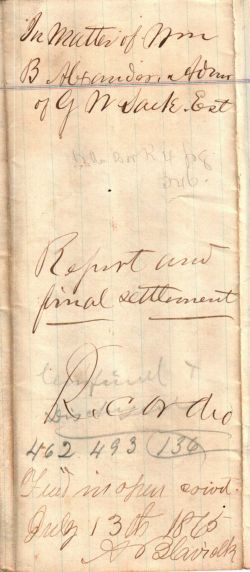 In Matter of Wm
B Alexander, Admr
of G W Sack Est
Report and
final settlement
Recorded
462 493 136
Filed in open court
July 13th 1875